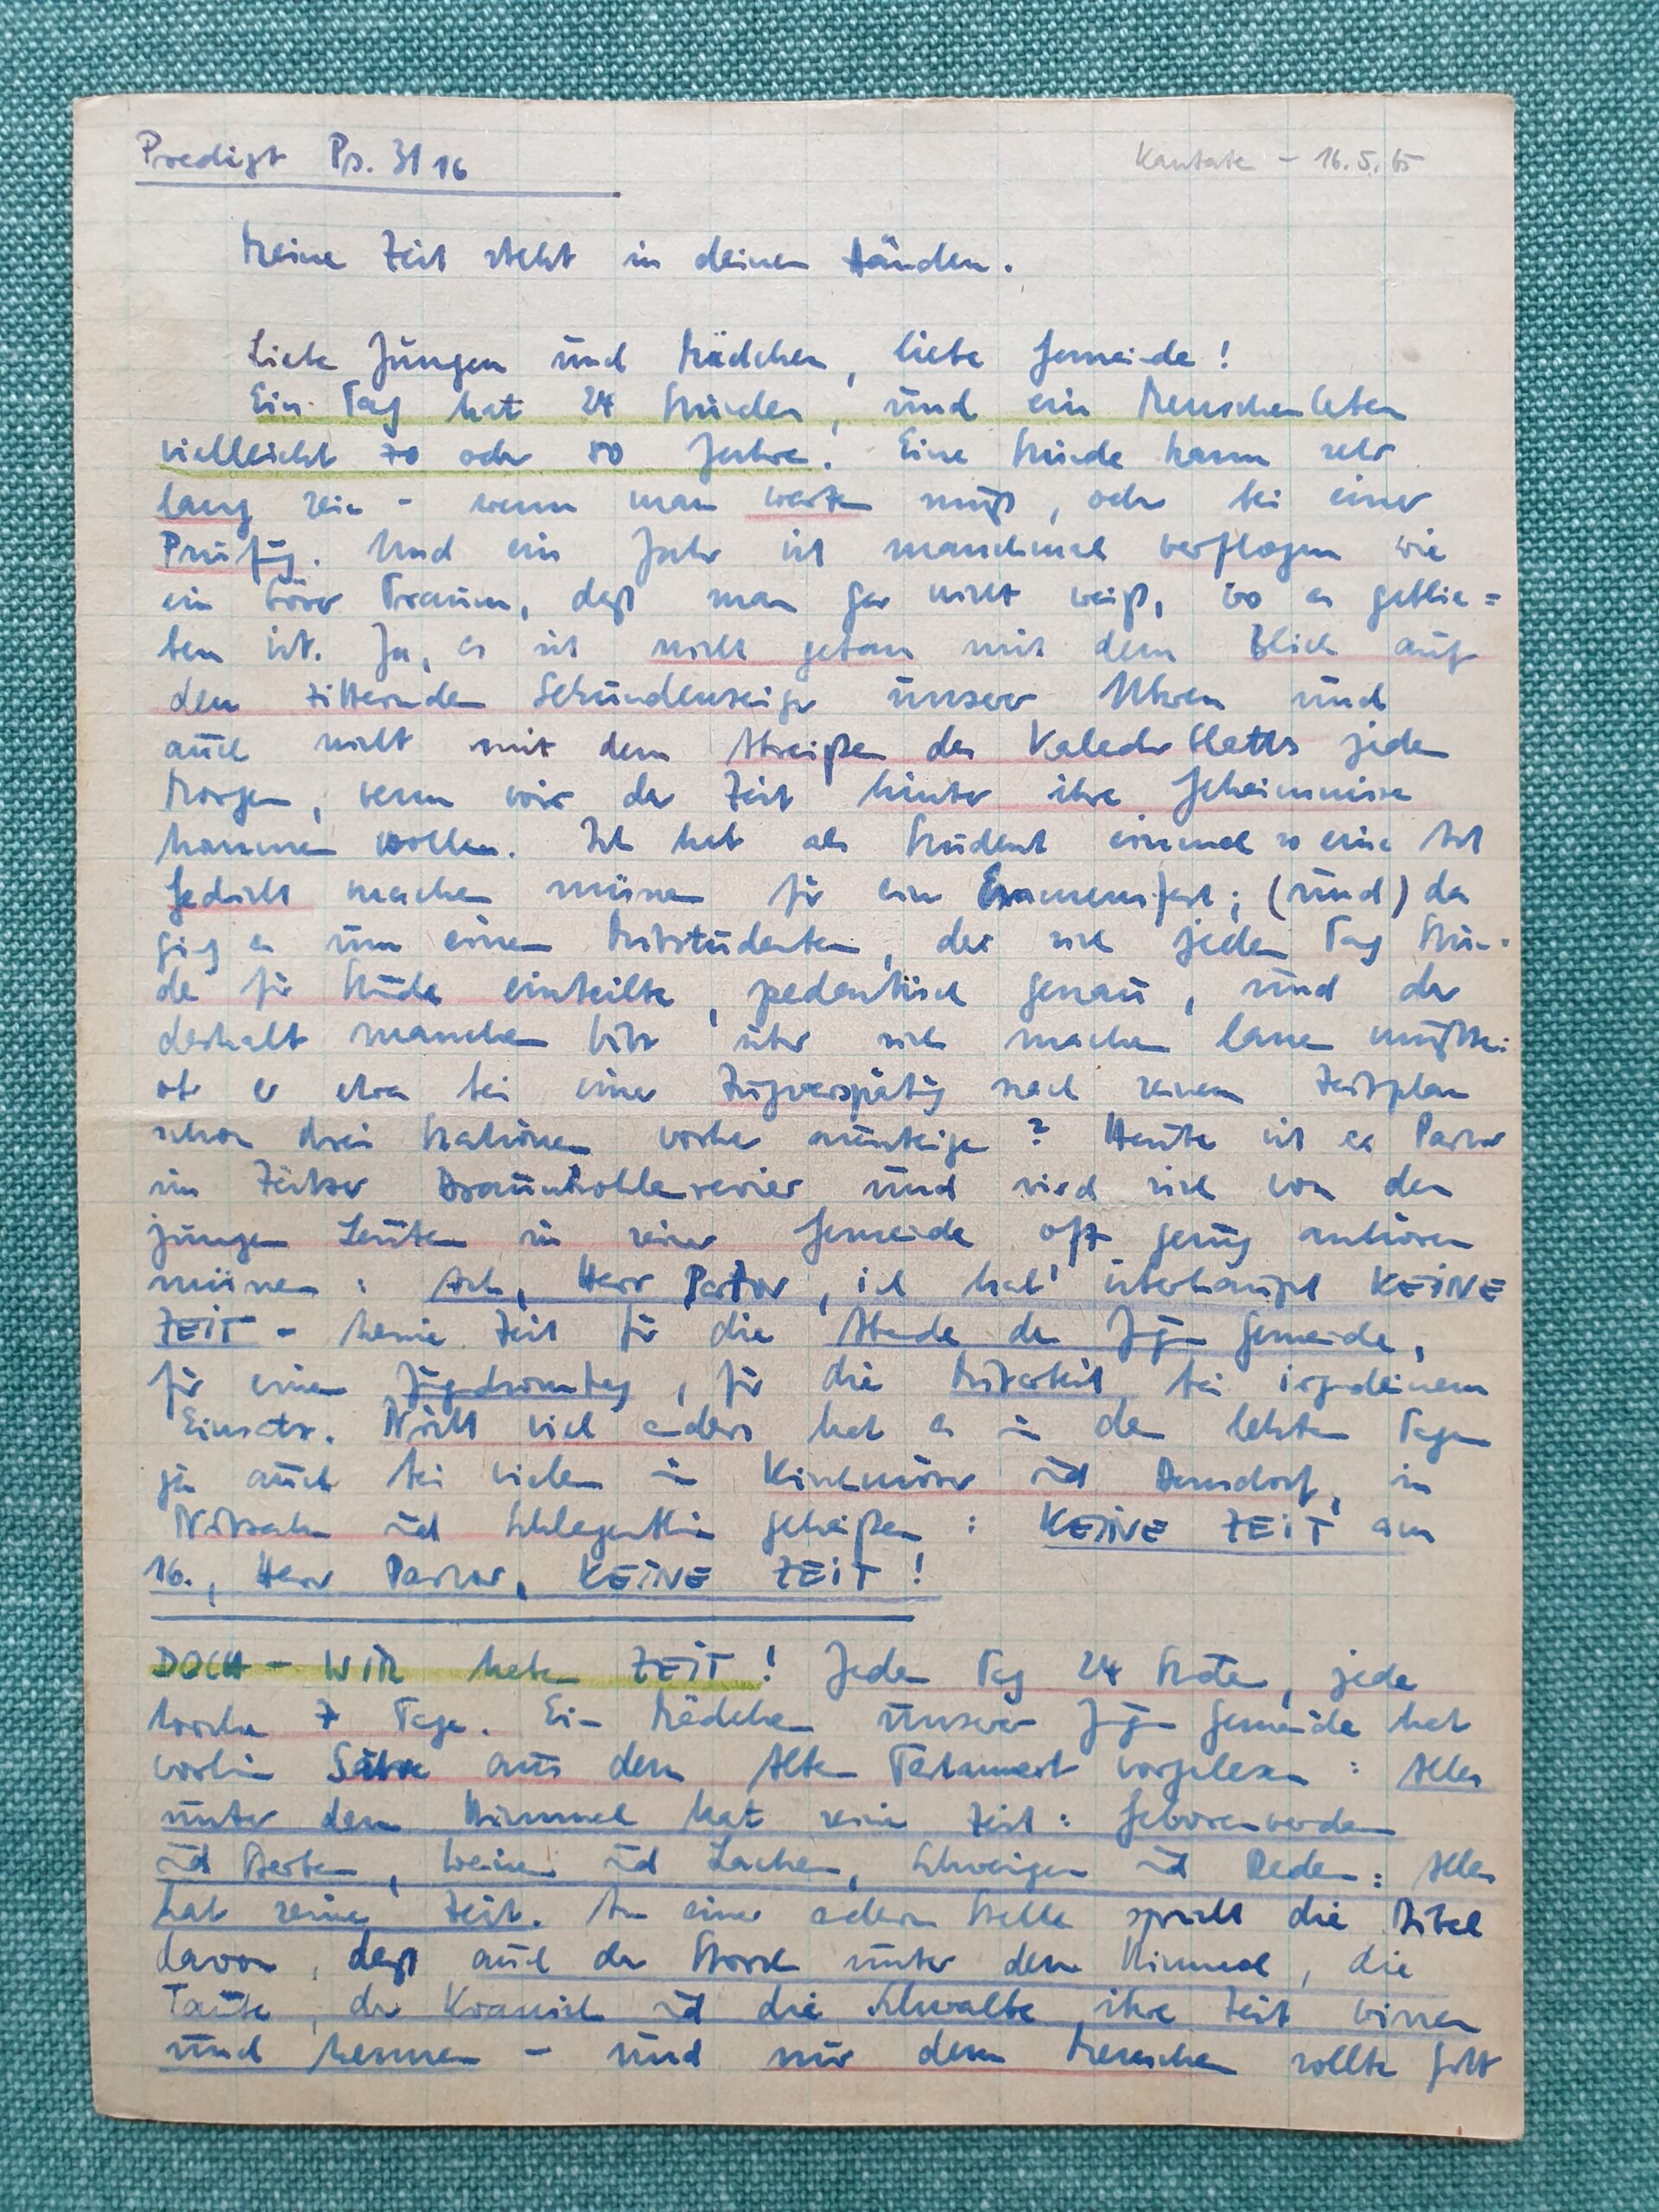 Predigt Ps. 31 16
Kantate - 16.5.65
Meine Zeit steht in deinen Händen.
Liebe Jungen und Mädchen, liebe Gemeinde!
Ein Tag hat 24 Stunden, und ein Menschenleben
vielleicht 70 oder 80 Jahre. Eine Stunde kann sehr
lang sein - wenn man warten muß, oder bei einer
Prüfg. Und ein Jahr ist manchmal verflogen wie
ein böser Traum, daß man gar nicht weiß, wo es geblie=
ben ist. Ja, es ist nicht getan mit dem Blick auf
den zitternden Sekundenzeiger unserer Uhren und
auch nicht mit dem Abreißen des Kalederblatts jeden
Morgen, wenn wir der Zeit hinter ihre Geheimnisse
kommen wollen. Ich hab als Student einmal so eine Art
Gedicht machen müssen für ein Examensfest; (und) da
ging es um einen Mitstudenten, der sich jeden Tag Stun-
de für Stunde einteilte, pedantisch genau, und der
deshalb manchen Witz über sich machen lassen mußte:
ob er etwa bei einer Zugverspätg nach seinem Zeitplan
schon drei Stationen vorher aussteige? Heute ist er Pastor
im Zeitzer Braunkohlenrevier und wird sich von den
jungen Leuten in seiner Gemeinde oft genug anhören
müssen: Ach, Herr Pastor, ich hab' überhaupt KEINE
ZEIT - keine Zeit für die Abende der Jgn Gemeinde,
für einen Jugendsonntag, für die Mitarbeit bei irgendeinem
Einsatz. Nicht viel anders hat es in den letzten Tagen
ja auch bei vielen in Kirchmöser ud Bensdorf, in
Nitzahn ud Schlagenthin geheißen: KEINE ZEIT am
16., Herr Pastor, KEINE ZEIT!
DOCH - WIR haben ZEIT! Jeden Tag 24 Stden, jede
Woche 7 Tage. Ein Mädchen unserer Jgn Gemeinde hat
vorhin Sätze aus dem Alten Testament vorgelesen: Alles
unter dem Himmel hat seine Zeit: Geborenwerden
ud Sterben, Weinen ud Lachen, Schweigen ud Reden: Alles
hat seine Zeit. An einer andern Stelle spricht die Bibel
davon, daß auch der Storch unter dem Himmel, die
Taube, der Kranich ud die Schwalbe ihre Zeit wissen
und kennen - und nur dem Menschen sollte Gott